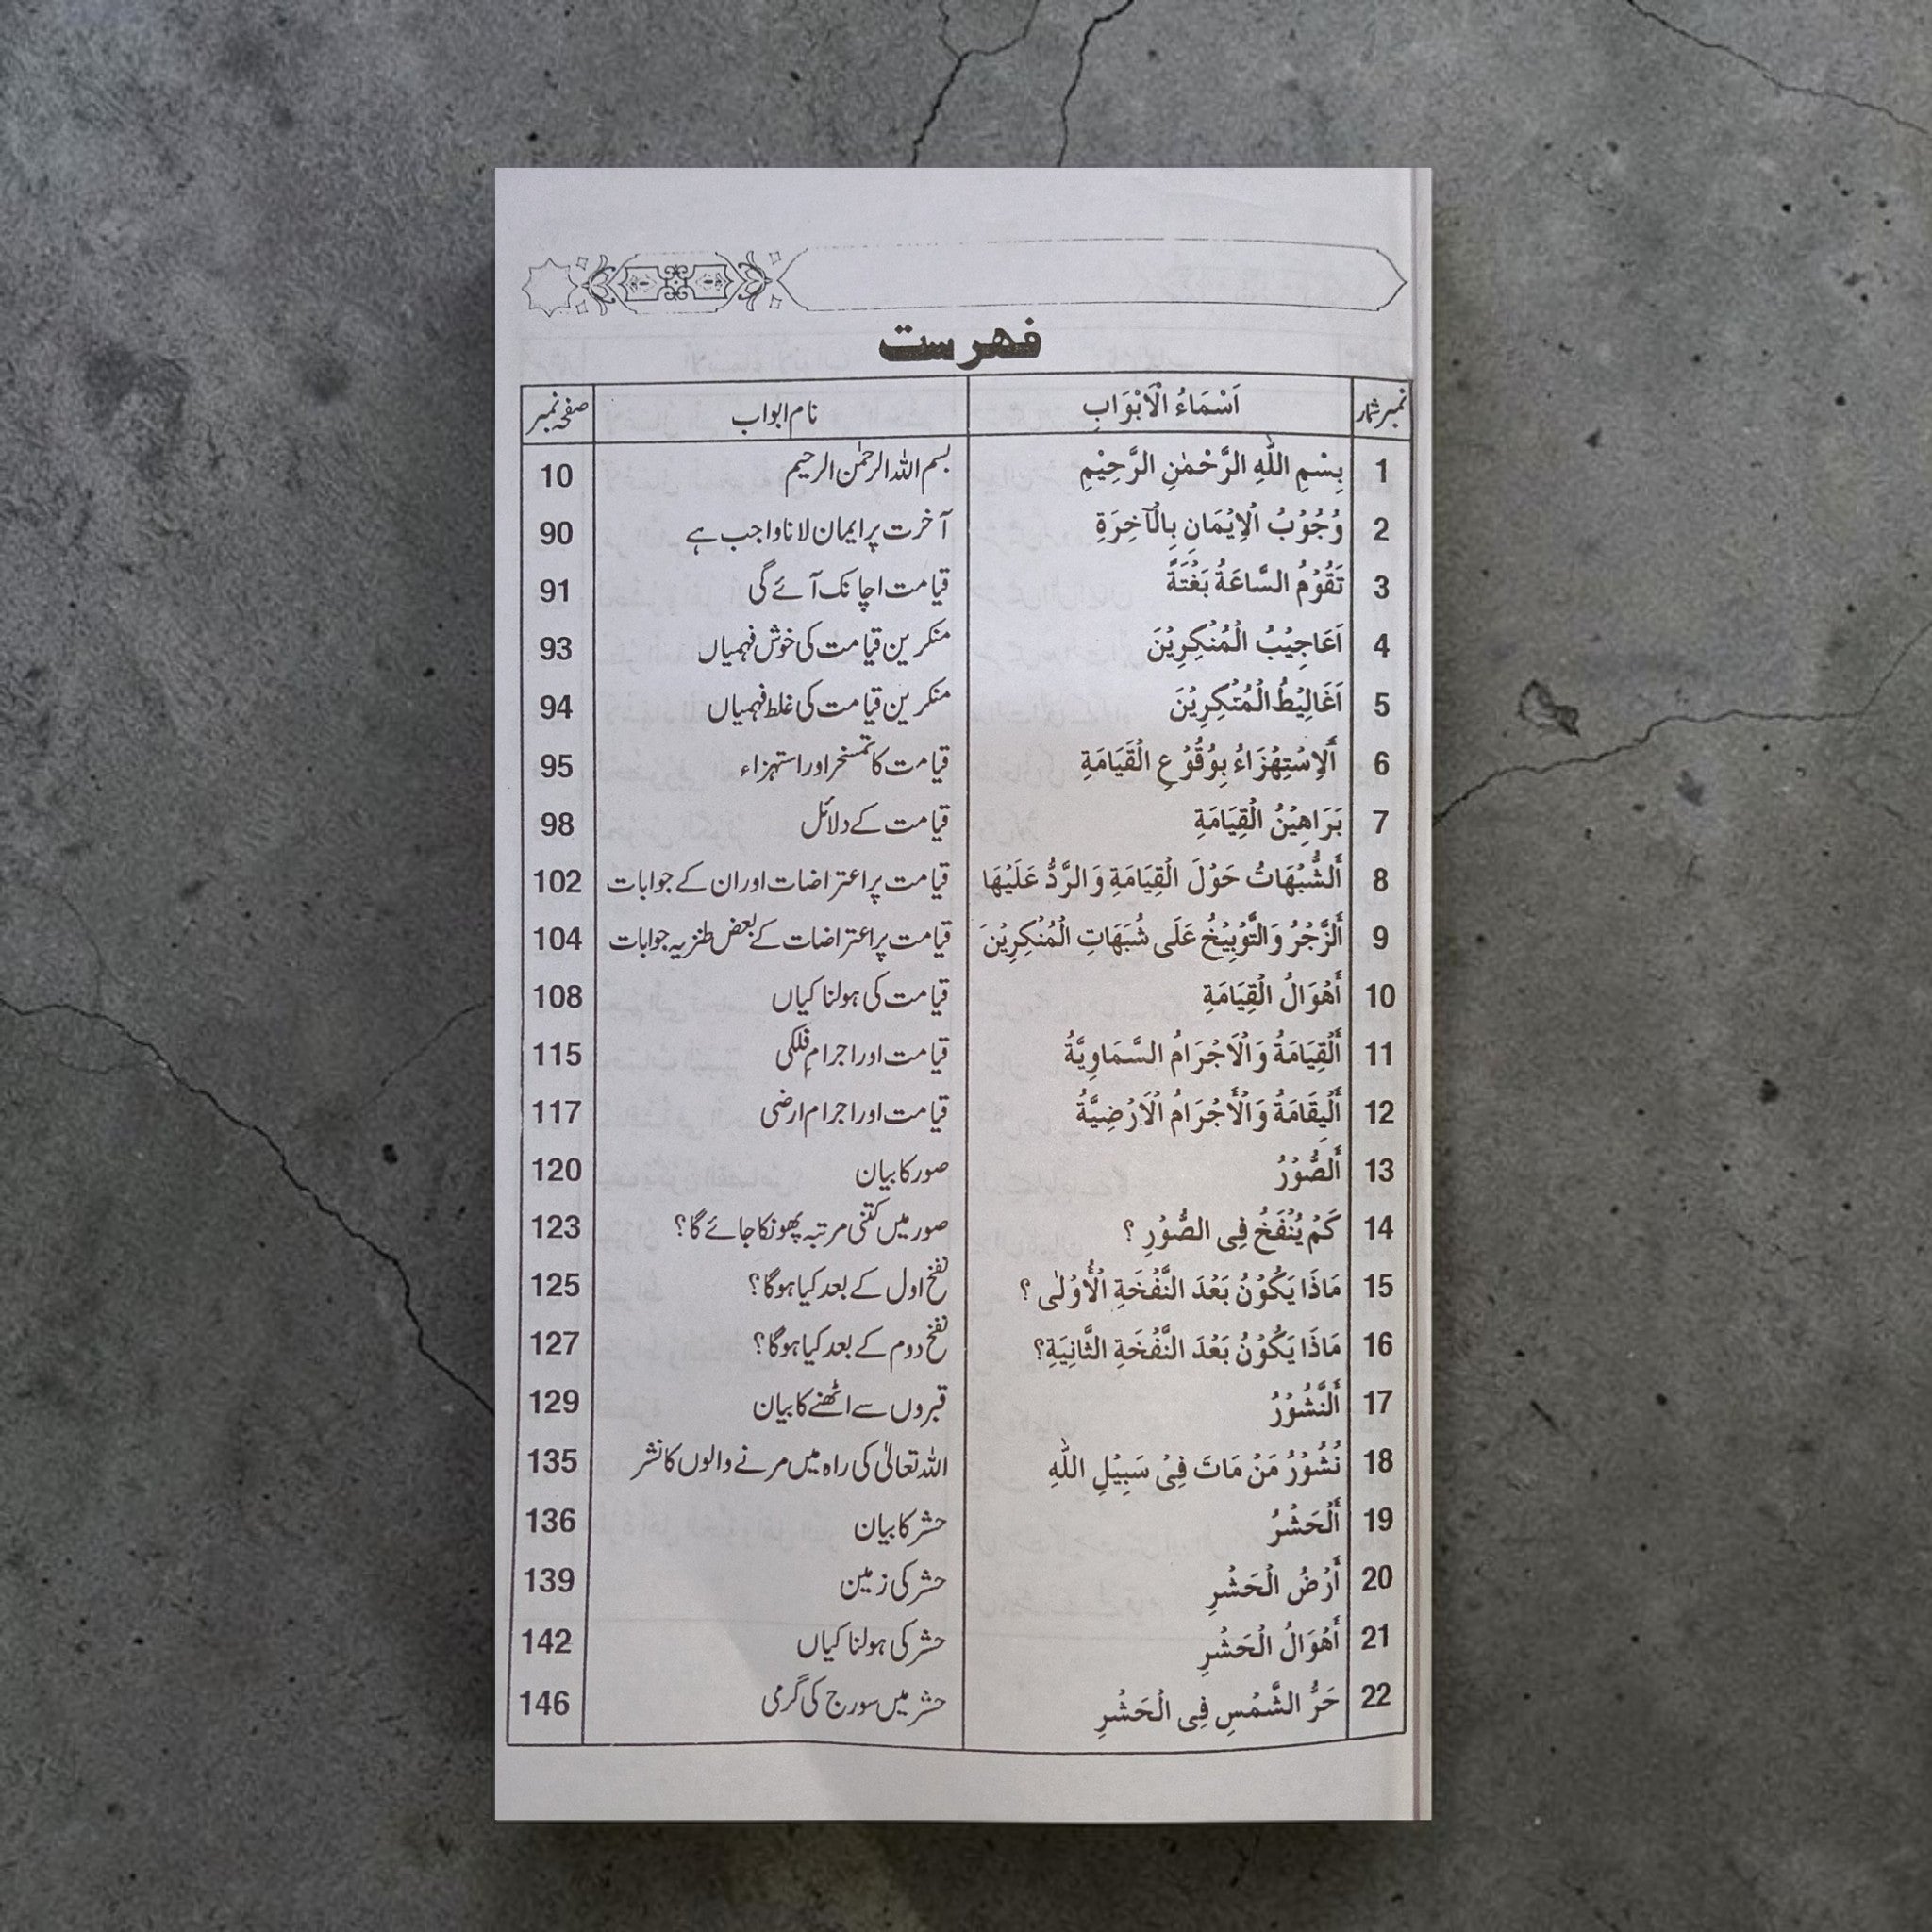 فهرست
نمبر شمار اَسْمَاءُ الْاَبْوَابِ نام ابواب صفحہ نمبر
1 بِسْمِ اللّٰهِ الرَّحْمٰنِ الرَّحِيْمِ بسم اللہ الرحمٰن الرحیم 10
2 وُجُوْبُ الْاِيْمَانِ بِالْآخِرَةِ آخرت پر ایمان لانا واجب ہے 90
3 تَقُوْمُ السَّاعَةُ بَغْتَةً قیامت اچانک آئے گی 91
4 اَعَاجِيْبُ الْمُنْكِرِيْنَ منکرین قیامت کی خوش فہمیاں 93
5 اَغَالِيْطُ الْمُنْكِرِيْنَ منکرین قیامت کی غلط فہمیاں 94
6 أَلْاِسْتِهْزَاءُ بِوُقُوْعِ الْقَيَامَةِ قیامت کا تمسخر اور استہزاء 95
7 بَرَاهِيْنُ الْقِيَامَةِ قیامت کے دلائل 98
8 أَلشُّبْهَاتُ حَوْلَ الْقِيَامَةِ وَالرَّدُّ عَلَيْهَا قیامت پر اعتراضات اور ان کے جوابات 102
9 أَلزَّجْرُ وَالتَّوْبِيْخُ عَلَى شُبَهَاتِ الْمُنْكِرِيْنَ قیامت پر اعتراضات کے بعض طنزیہ جوابات 104
10 أَهْوَالُ الْقِيَامَةِ قیامت کی ہولناکیاں 108
11 أَلْقِيَامَةُ وَالْاَجْرَامُ السَّمَاوِيَّةُ قیامت اور اجرامِ فلکی 115
12 أَلْيِقَامَةُ وَالْأَجْرَامُ الْاَرْضِيَّةُ قیامت اور اجرام ارضی 117
13 أَلصُّوْرُ صور کا بیان 120
14 كَمْ يُنْفَخُ فِى الصُّوْرِ ؟ صور میں کتنی مرتبہ پھونکا جائے گا؟ 123
15 مَاذَا يَكُوْنُ بَعْدَ النَّفْخَةِ الْأُوْلٰى ؟ نفخ اول کے بعد کیا ہوگا؟ 125
16 مَاذَا يَكُوْنُ بَعْدَ النَّفْخَةِ الثَّانِيَةِ؟ نفخ دوم کے بعد کیا ہوگا؟ 127
17 أَلنَّشُوْرُ قبروں سے اٹھنے کا بیان 129
18 نُشُوْرُ مَنْ مَاتَ فِىْ سَبِيْلِ اللّٰهِ اللہ تعالیٰ کی راہ میں مرنے والوں کا نشر 135
19 أَلْحَشْرُ حشر کا بیان 136
20 أَرْضُ الْحَشْرِ حشر کی زمین 139
21 أَهْوَالُ الْحَشْرِ حشر کی ہولناکیاں 142
22 حَرُّ الشَّمْسِ فِى الْحَشْرِ حشر میں سورج کی گرمی 146